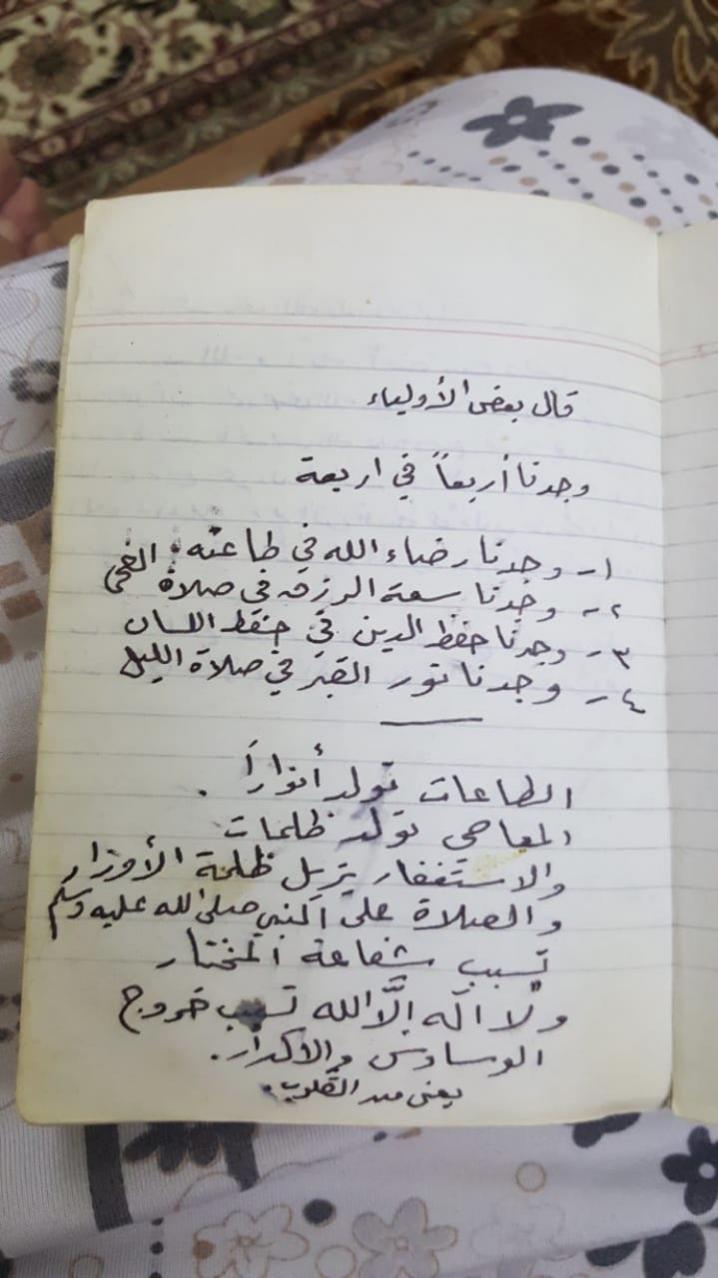 قال بعض الأولياء
وجدنا أربعاً في اربعة
١- وجدنا رضاء الله في طاعته
٢- وجدنا سعة الرزق في صلاة الضحى
٣- وجدنا حفظ الدين في حفظ اللسان
٤- وجدنا نور القبر في صلاة الليل
الطاعات تولد أنواراً .
المعاصي تولد ظلمات
والاستغفار يزيل ظلمة الأوزار
والصلاة على النبي صلى الله عليه وسلم
تسبب شفاعة المختار
ولا اله إلَّا الله تسبب خروج
الوساوس والاكدار .
يعني من القلوب .